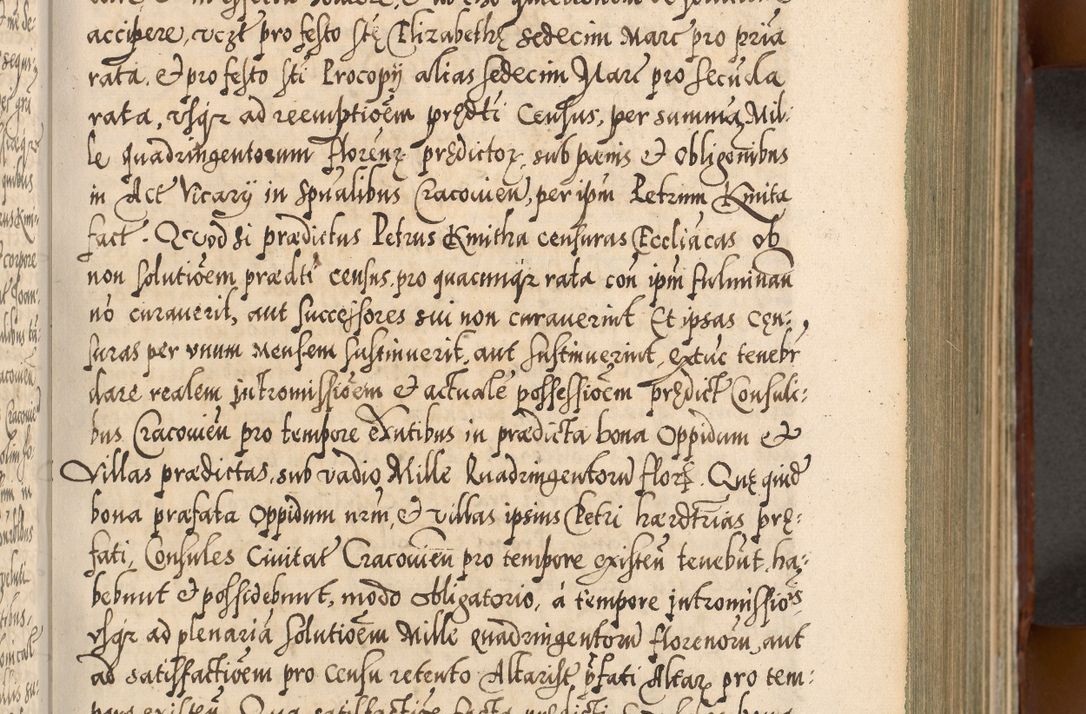 accipere, vczt pro festo Stę Elizabethę sedecim Marc pro pria
rata. et pro festo sti Procopij alias sedecim Marc pro secuda
rata, vsqz ad reemptioem prędti Census, per summa Mil-
le quadringentorum florenz prędictoz, sub pænis et obligonibus
in Act Vicarij in Spualibus Cracouien, per ipm Petrum Kmita
fact. Quod si prædictus Petrus Kmitha censuras Eccliacas ob
non solutioem prædti census, pro quacunqz rata con ipm fulminan
no curauerit, aut successores sui non curauerint Et ipsas Cęn-
suras per vnum Mensem sustinuerit, aut sustinuerint, extuc tenebr
dare realem intromissioem et actuale possessioem prędict Consuli:
bus Cracouien pro tempore exntibus in prædicta bona Oppidum et
Villas prædictas, sub vadio Mille Quadringentoru flor. Quę quid
bona præfata Oppidum nrm, et villas ipsius Petri hærdtrias prę:
fati, Consules Ciuitat Cracouien pro tempore existen tenebut, ha:
bebunt et possidebunt, modo obligatorio, à tempore intromissiois
vsqz ad plenaria solutioem Mille quadringentoru florenoru, aut
ad satisfactioem pro censu retento Altarist pfati Altar pro tem: